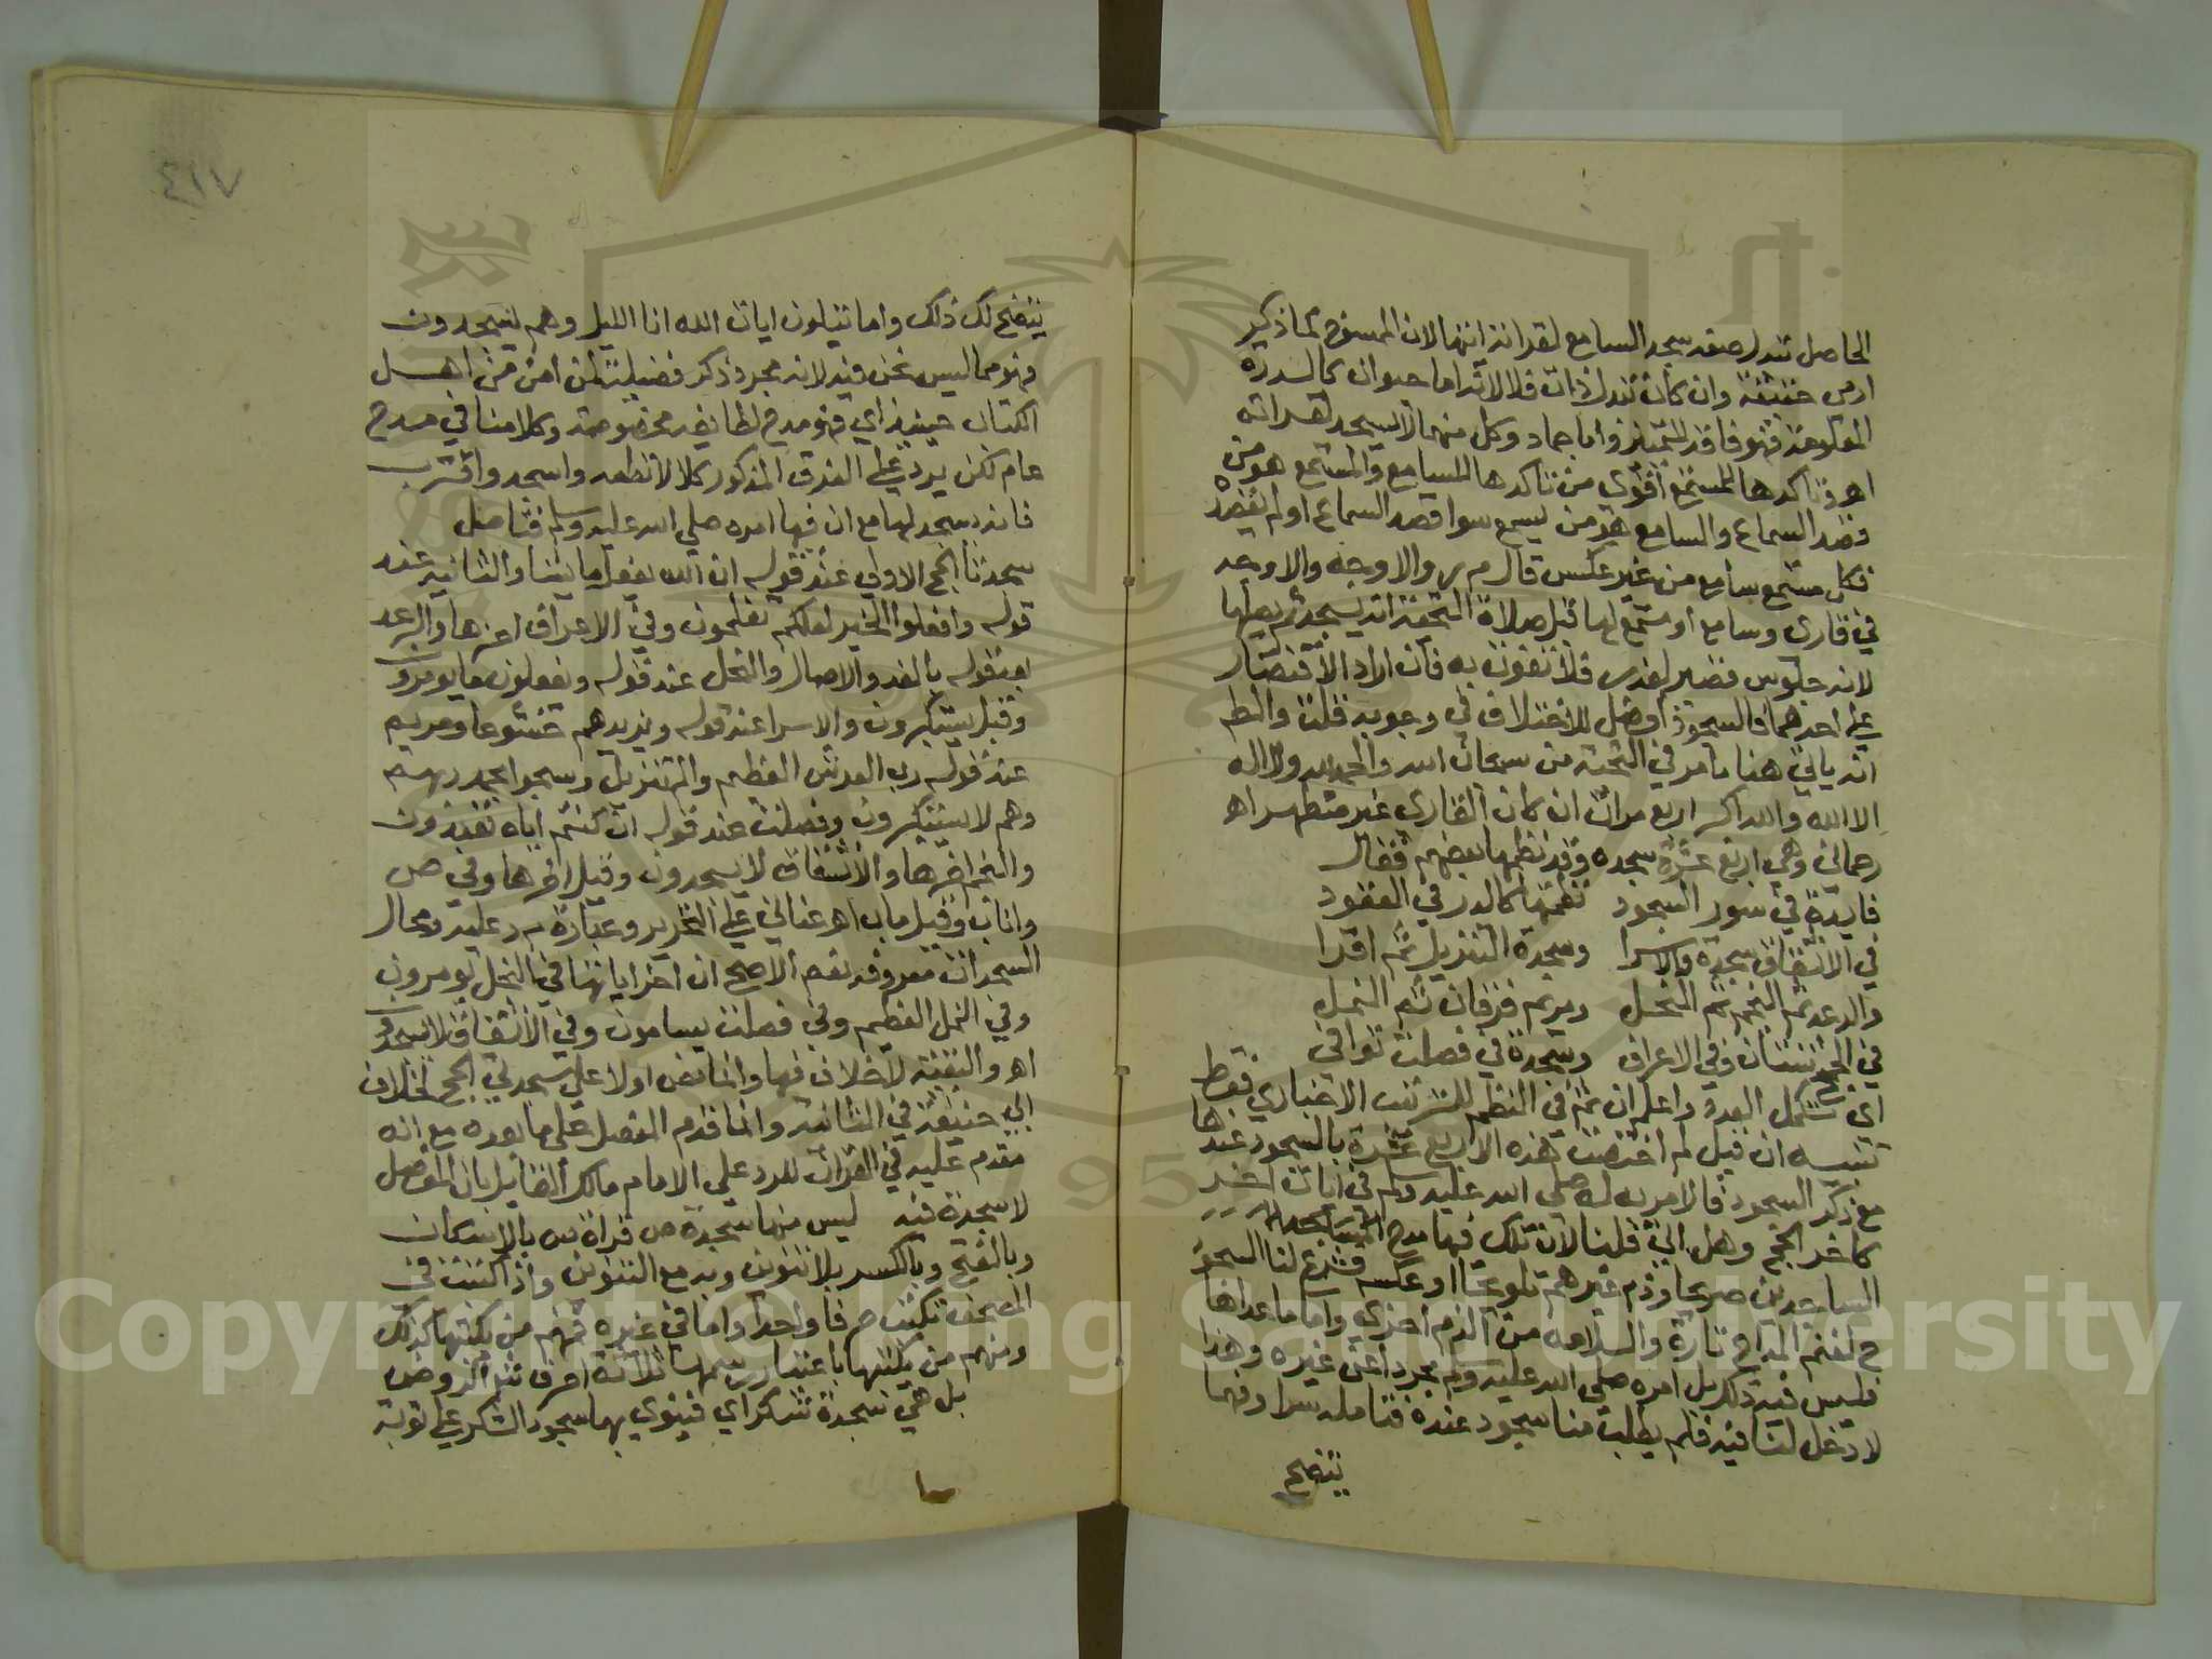 الحاصل تبدل صفه سجد السامع لقراته انتها لان الممسوخ كما ذكر
ادمي حقيقة وان كان تبدل ذات فلا لانه اما حيوان كالدرة
المعلومة فهو فاقد للتمييز واما جماد وكل منهما لا يسجد لقراته
اهـ وتاكدها للمستمع اقوي من تاكدها للسامع والمستمع هو من
قصد السماع والسامع هو من يسمع سوا قصد السماع او لم يقصد
فكل مستمع سامع من غير عكس قال م ر والاوجه
في قاري وسامع او مستمع لها قبل صلاة التحية انه يسجد ثم يصليها
لانه جلوس قصير لعذر فلا تفوت به فان اراد الاقتصار
علي احدهما فالسجود افضل للاختلاف في وجوبه قلت وانظر
انه ياتي هنا ما مر في التحية من سبحان الله والحمد لله ولا اله
الا الله والله اكبر اربع مرات ان كان القاري غير متطهر اهـ
رحماني وهي اربع عشرة سجده وقد نظمها بعضهم فقال
فايدة في سور السجود نظمتها كالدر في العقود
في الانشقاق سجدة والاسرا وسجدة التنزيل ثم اقرا
والرعد ثم النجم ثم النحل ومريم فرقان ثم النمل
في الحج ثنتان وفي الاعراف وسجدة في فصلت توافي
اي تكمل العدة واعلم ان ثم في النظم للترتيب الاخباري فقط
تنبيه ان قيل لم اختصت هذه الاربع عشرة بالسجود عندها
مع ذكر السجود والامر به له صلي الله عليه وسلم في ايات اخر
كاخر الحجر وهل اتي قلنا لان تلك فيها مدح
الساجدين صريحا وذم غيرهم تلويحا او عكسه فشرع لنا السجود
ح لغنم المدح تارة والسلامة من الذم اخري واما ما عداها
فليس فيه ذلك بل امره صلي الله عليه وسلم مجردا عن غيره وهذا
لا دخل لنا فيه فلم يطلب منا سجود عنده فتامله سرا وفهما
يتضح
٤١٧
يتضح لك ذلك واما يتلون ايات الله انا الليل وهم يسجدون
فهو مما ليس نحن فيه لانه مجرد ذكر فضيلة لمن امن من اهل
الكتاب حينيذ اي فهو مدح لطايفه مخصوصة وكلامنا في مدح
عام لكن يرد علي الفرق المذكور كلا لا تطعه واسجد واقترب
فانه يسجد لها مع ان فيها امره صلي الله عليه وسلم فتامل
سجدتا الحج الاولي عند قوله ان الله يفعل ما يشا والثانية عند
قوله وافعلوا الخير لعلكم تفلحون وفي الاعراف اخرها والرعد
بعد قوله بالغدو والاصال والنحل عند قوله ويفعلون ما يومرون
وقيل يستكبرون والاسرا عند قوله ويزيدهم خشوعا ومريم
عند قوله رب العرش العظيم والم تنزيل وسبحوا بحمد ربهم
وهم لا يستكبرون وفصلت عند قوله ان كنتم اياه تعبدون
والنجم اخرها والانشقاق لا يسجدون وقيل اخرها وفي ص
واناب وقيل ماب اهـ عناني علي التحرير وعبارة م ر عليه ومحال
السجدات معروفه نعم الاصح ان اخر اياتها في النحل يومرون
وفي النمل العظيم وفي فصلت يسامون وفي الانشقاق لا يسجدون
اهـ والبقية لا خلاف فيها وانما نص اولا علي سجدتي الحج لخلاف
ابي حنيفة في الثانية وانما قدم المفصل علي ما بعده مع انه
مقدم عليه في القران للرد علي الامام مالك القايل بان المفصل
لا سجدة فيه ليس منها سجدة ص قراة ص بالاسكان
وبالفتح وبالكسر بلا تنوين وبه مع التنوين واذا كتبت في
المصحف تكتب حرفا واحدا واما في غيره فمنهم من يكتبها كذلك
ومنهم من يكتبها باعتبار رسمها ثلاثة احرف
بل هي سجدة شكر اي فينوي بها سجود الشكر علي توبة
Copyright © King Saud University